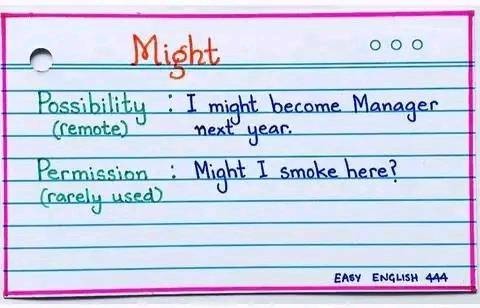 Might
Possibility : I might become Manager
(remote) next year.
Permission : Might I smoke here?
(rarely used)
EASY ENGLISH 444